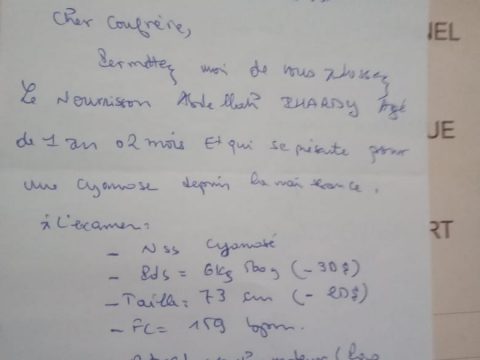 Cher Confrère,
NEL
Permettez moi de vous adresser
Le Nourrisson Abdellah Âgé
de 1 an 02 mois Et qui se présente pour
UE
une cyanose depuis la naissance.
à l'examen:
RT
- Nss cyanosé
- Pds = 6kg 500g (- 3DS)
- Taille: 73 cm (- 2DS)
- FC = 159 bpm.